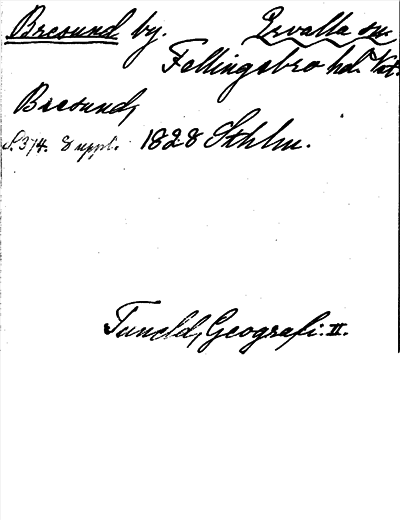 Bresund by. Ervalla sn.
Fellingsbro hd. Vstm.
Bresund,
S. 374. Suppl. 1828 Sthlm.
Tuneld, Geografi. II.